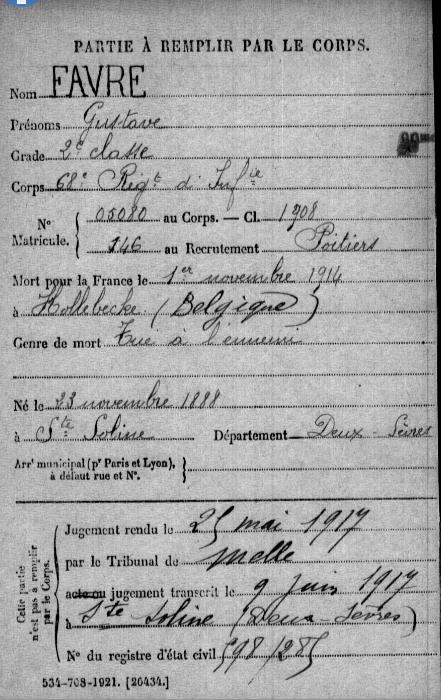 PARTIE À REMPLIR PAR LE CORPS.
Nom FAVRE
Prénoms Gustave
Grade 2e classe
Corps 68e Régt d'Infie
No Matricule. { 05080 au Corps. — Cl. 1908
146 au Recrutement Poitiers
Mort pour la France le 1er novembre 1914
à Hollebecke (Belgique)
Genre de mort Tué à l'ennemi
Né le 23 novembre 1888
à Ste Soline Département Deux-Sèvres
Arrt municipal (pr Paris et Lyon), à défaut rue et No.
Cette partie n'est pas à remplir par le Corps.
Jugement rendu le 25 mai 1917
par le Tribunal de Melle
acte ou jugement transcrit le 9 juin 1917
à Ste Soline (Deux-Sèvres)
No du registre d'état civil
534-708-1921. [26434.]